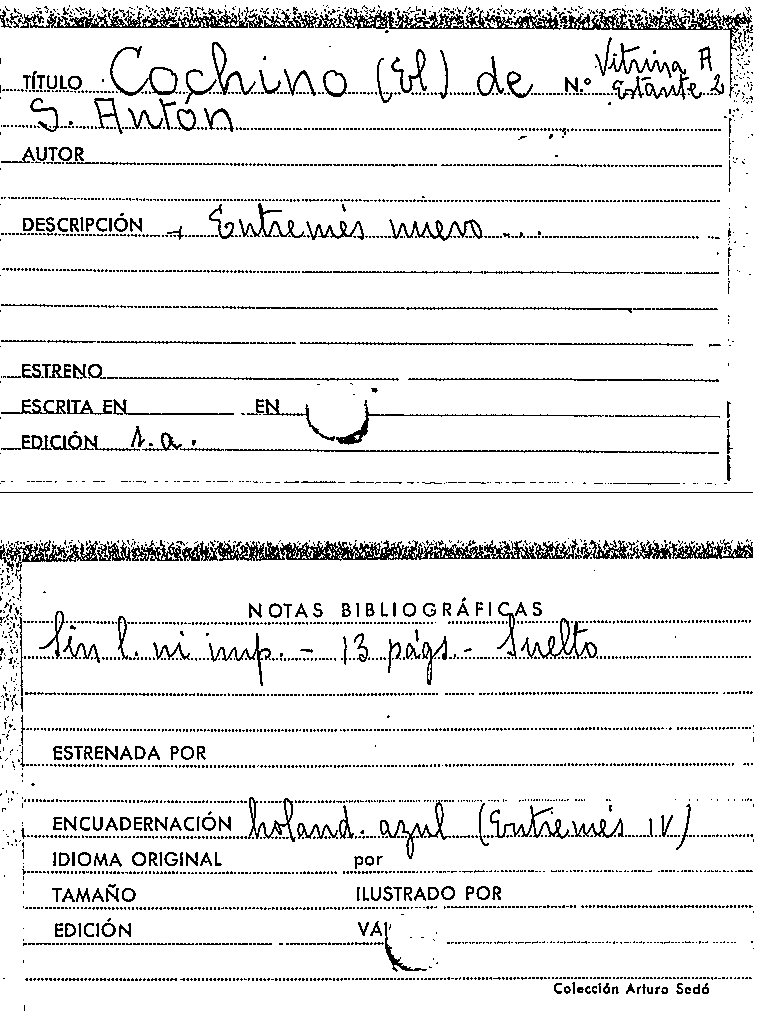 TÍTULO Cochino (El) de N.º Vitrina A
Estante 2
S. Antón
AUTOR
DESCRIPCIÓN Entremés nuevo...
ESTRENO
ESCRITA EN EN
EDICIÓN s.a.
NOTAS BIBLIOGRÁFICAS
Sin l. ni imp. - 13 págs. - Suelto
ESTRENADA POR
ENCUADERNACIÓN holand. azul (Entremés IV)
IDIOMA ORIGINAL por
TAMAÑO ILUSTRADO POR
EDICIÓN
Colección Arturo Sedó